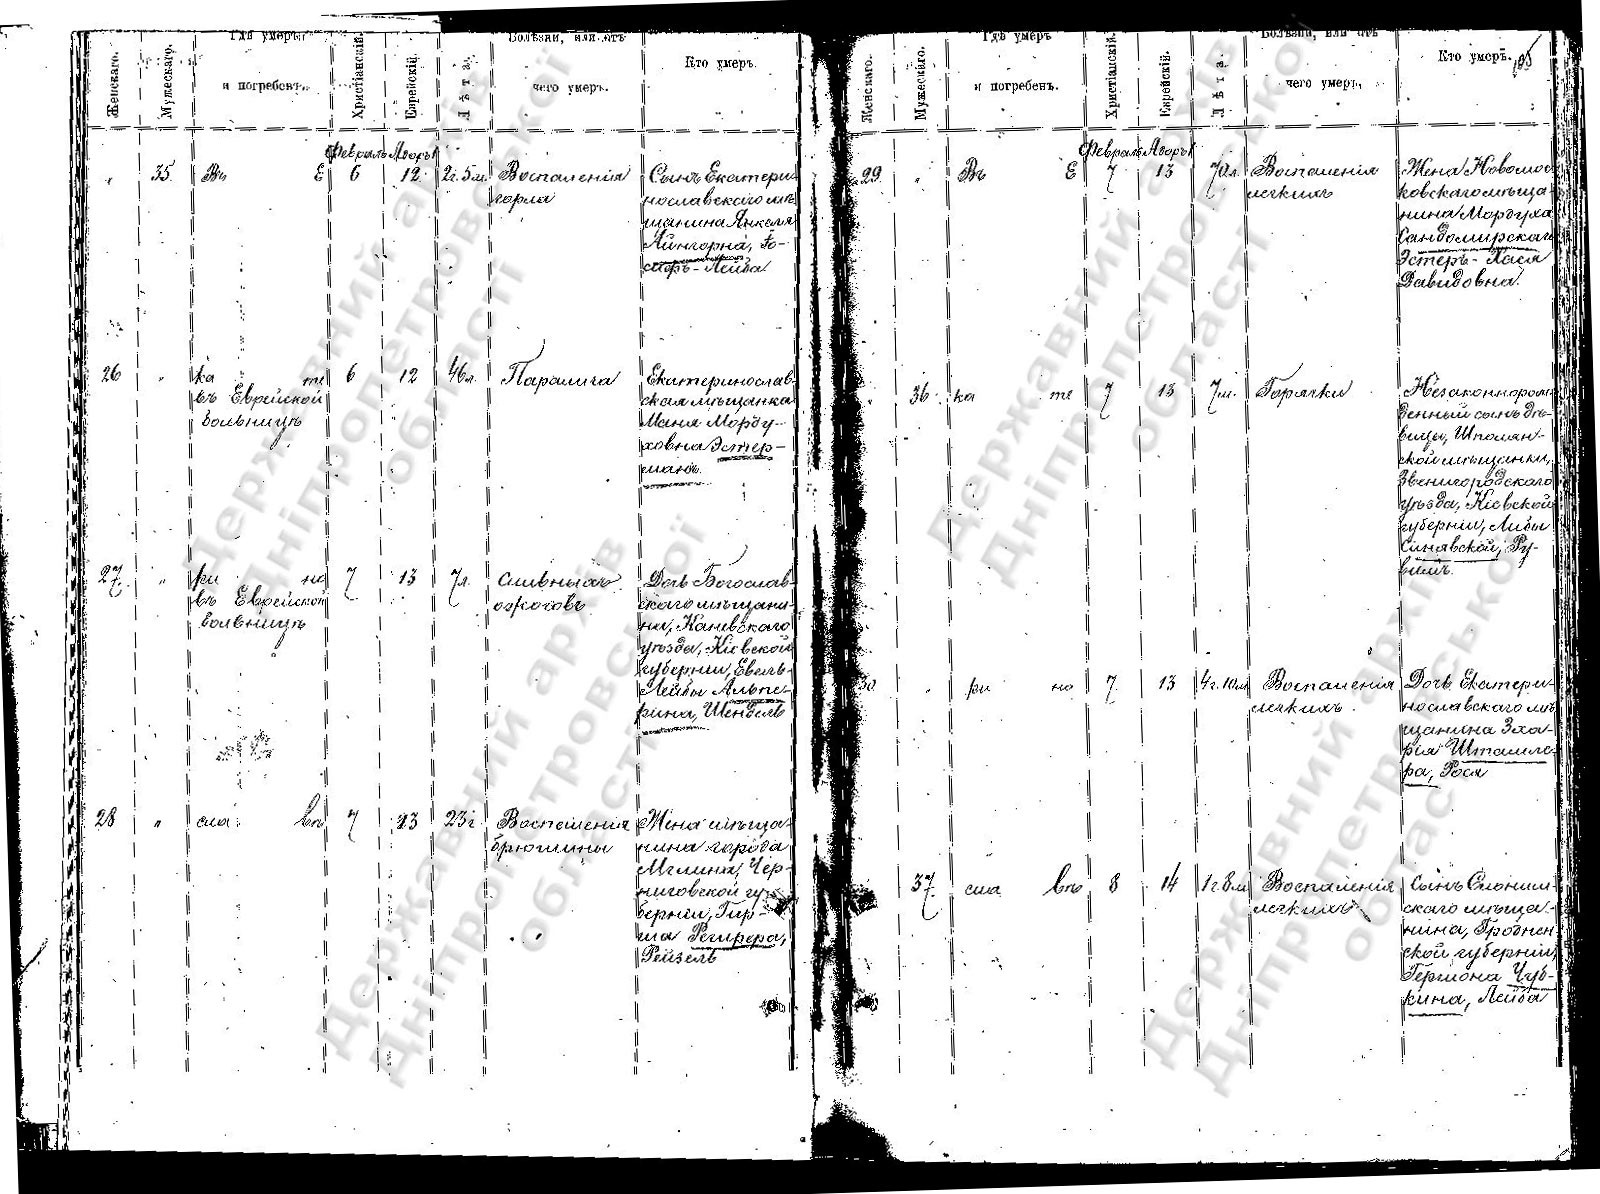 Женскаго.
Мужескаго.
Гдѣ умеръ
и погребенъ.
Христіанскій.
Еврейскій.
Лѣта.
Болѣзни, или отъ
чего умеръ.
Кто умеръ.
Февраль Адоръ I
" 35 Въ Е 6 12 2г. 5м. Воспаленія
горла
Сынъ Екатери-
нославскаго мѣ-
щанина Янкеля
Айнгорна, Іо-
сифъ-Лейба
26 " ка те 6 12 46л. Паралича
въ Еврейской
больницѣ
Екатеринослав-
ская мѣщанка
Маня Морду-
ховна Эстер-
манъ.
27 " ри но 7 13 7л. Сильныхъ
въ Еврейской ожоговъ
больницѣ
Дочь Богослав-
скаго мѣщани-
на, Каневскаго
уѣзда, Кіевской
губерніи, Евель-
Лейбы Альпе-
рина, Шендель
28 " сла въ 7 13 23г. Воспаленія
брюшины
Жена мѣща-
нина города
Мглина, Чер-
ниговской гу-
берніи, Гир-
ша Регирера,
Рейзель
Женскаго.
Мужескаго.
Гдѣ умеръ
и погребенъ.
Христіанскій.
Еврейскій.
Лѣта.
Болѣзни, или отъ
чего умеръ.
Кто умеръ.
Февраль Адоръ I
29 " Въ Е 7 13 70л. Воспаленія
легкихъ
Жена Новомос-
ковскаго мѣща-
нина Мордуха
Сандомирскаго
Эстеръ-Хася
Давидовна.
36 ка те 7 13 7м. Горячки
Незаконнорож-
денный сынъ дѣ-
вицы, Шполян-
ской мѣщанки,
Звенигородскаго
уѣзда, Кіевской
губерніи, Либы
Синявской, Ру-
вимъ.
30 " ри но 7 13 4г. 10м. Воспаленія
легкихъ.
Дочь Екатери-
нославскаго мѣ-
щанина Зха-
рія Штамле-
ра, Рося
37 сла въ 8 14 1г 8м Воспаленія
легкихъ
Сынъ Слоним-
скаго мѣща-
нина, Гроднен-
ской губерніи,
Гершона Чуб-
кина, Лейба
Державний архів
Дніпропетровської
області